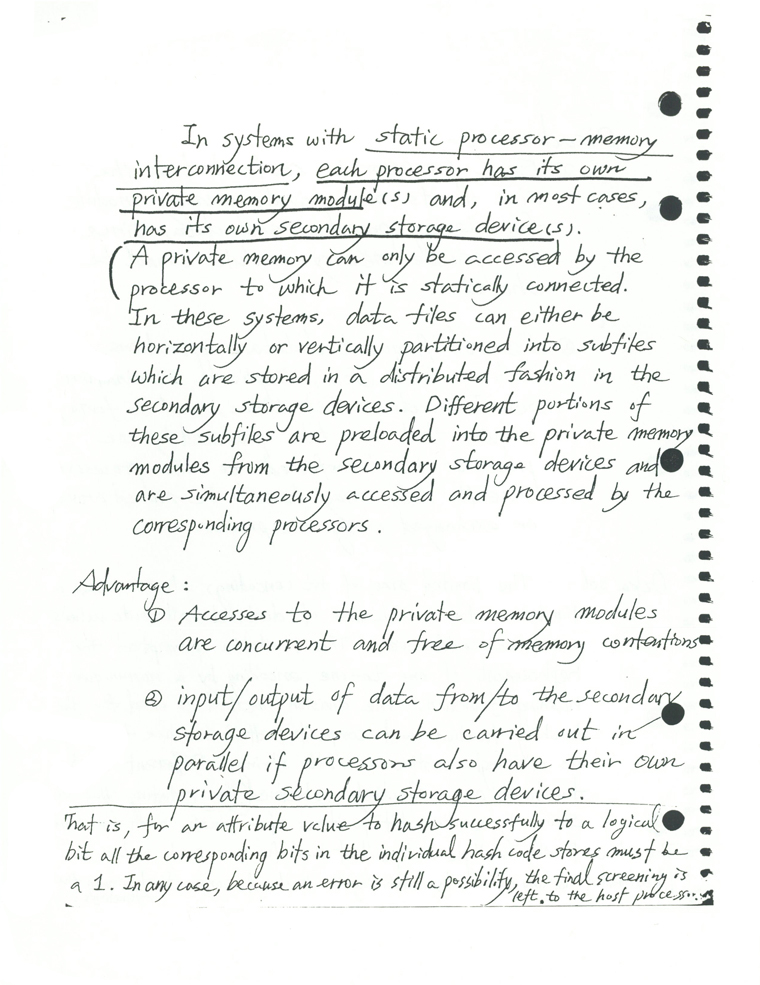 In systems with static processor-memory
interconnection, each processor has its own
private memory module(s) and, in most cases,
has its own secondary storage device(s).
(A private memory can only be accessed by the
processor to which it is statically connected.
In these systems, data files can either be
horizontally or vertically partitioned into subfiles
which are stored in a distributed fashion in the
secondary storage devices. Different portions of
these subfiles are preloaded into the private memory
modules from the secondary storage devices and
are simultaneously accessed and processed by the
corresponding processors.
Advantage:
① Accesses to the private memory modules
are concurrent and free of memory contentions
② input/output of data from/to the secondary
storage devices can be carried out in
parallel if processors also have their own
private secondary storage devices.
That is, for an attribute value to hash successfully to a logical
bit all the corresponding bits in the individual hash code stores must be
a 1. In any case, because an error is still a possibility, the final screening is
left to the host